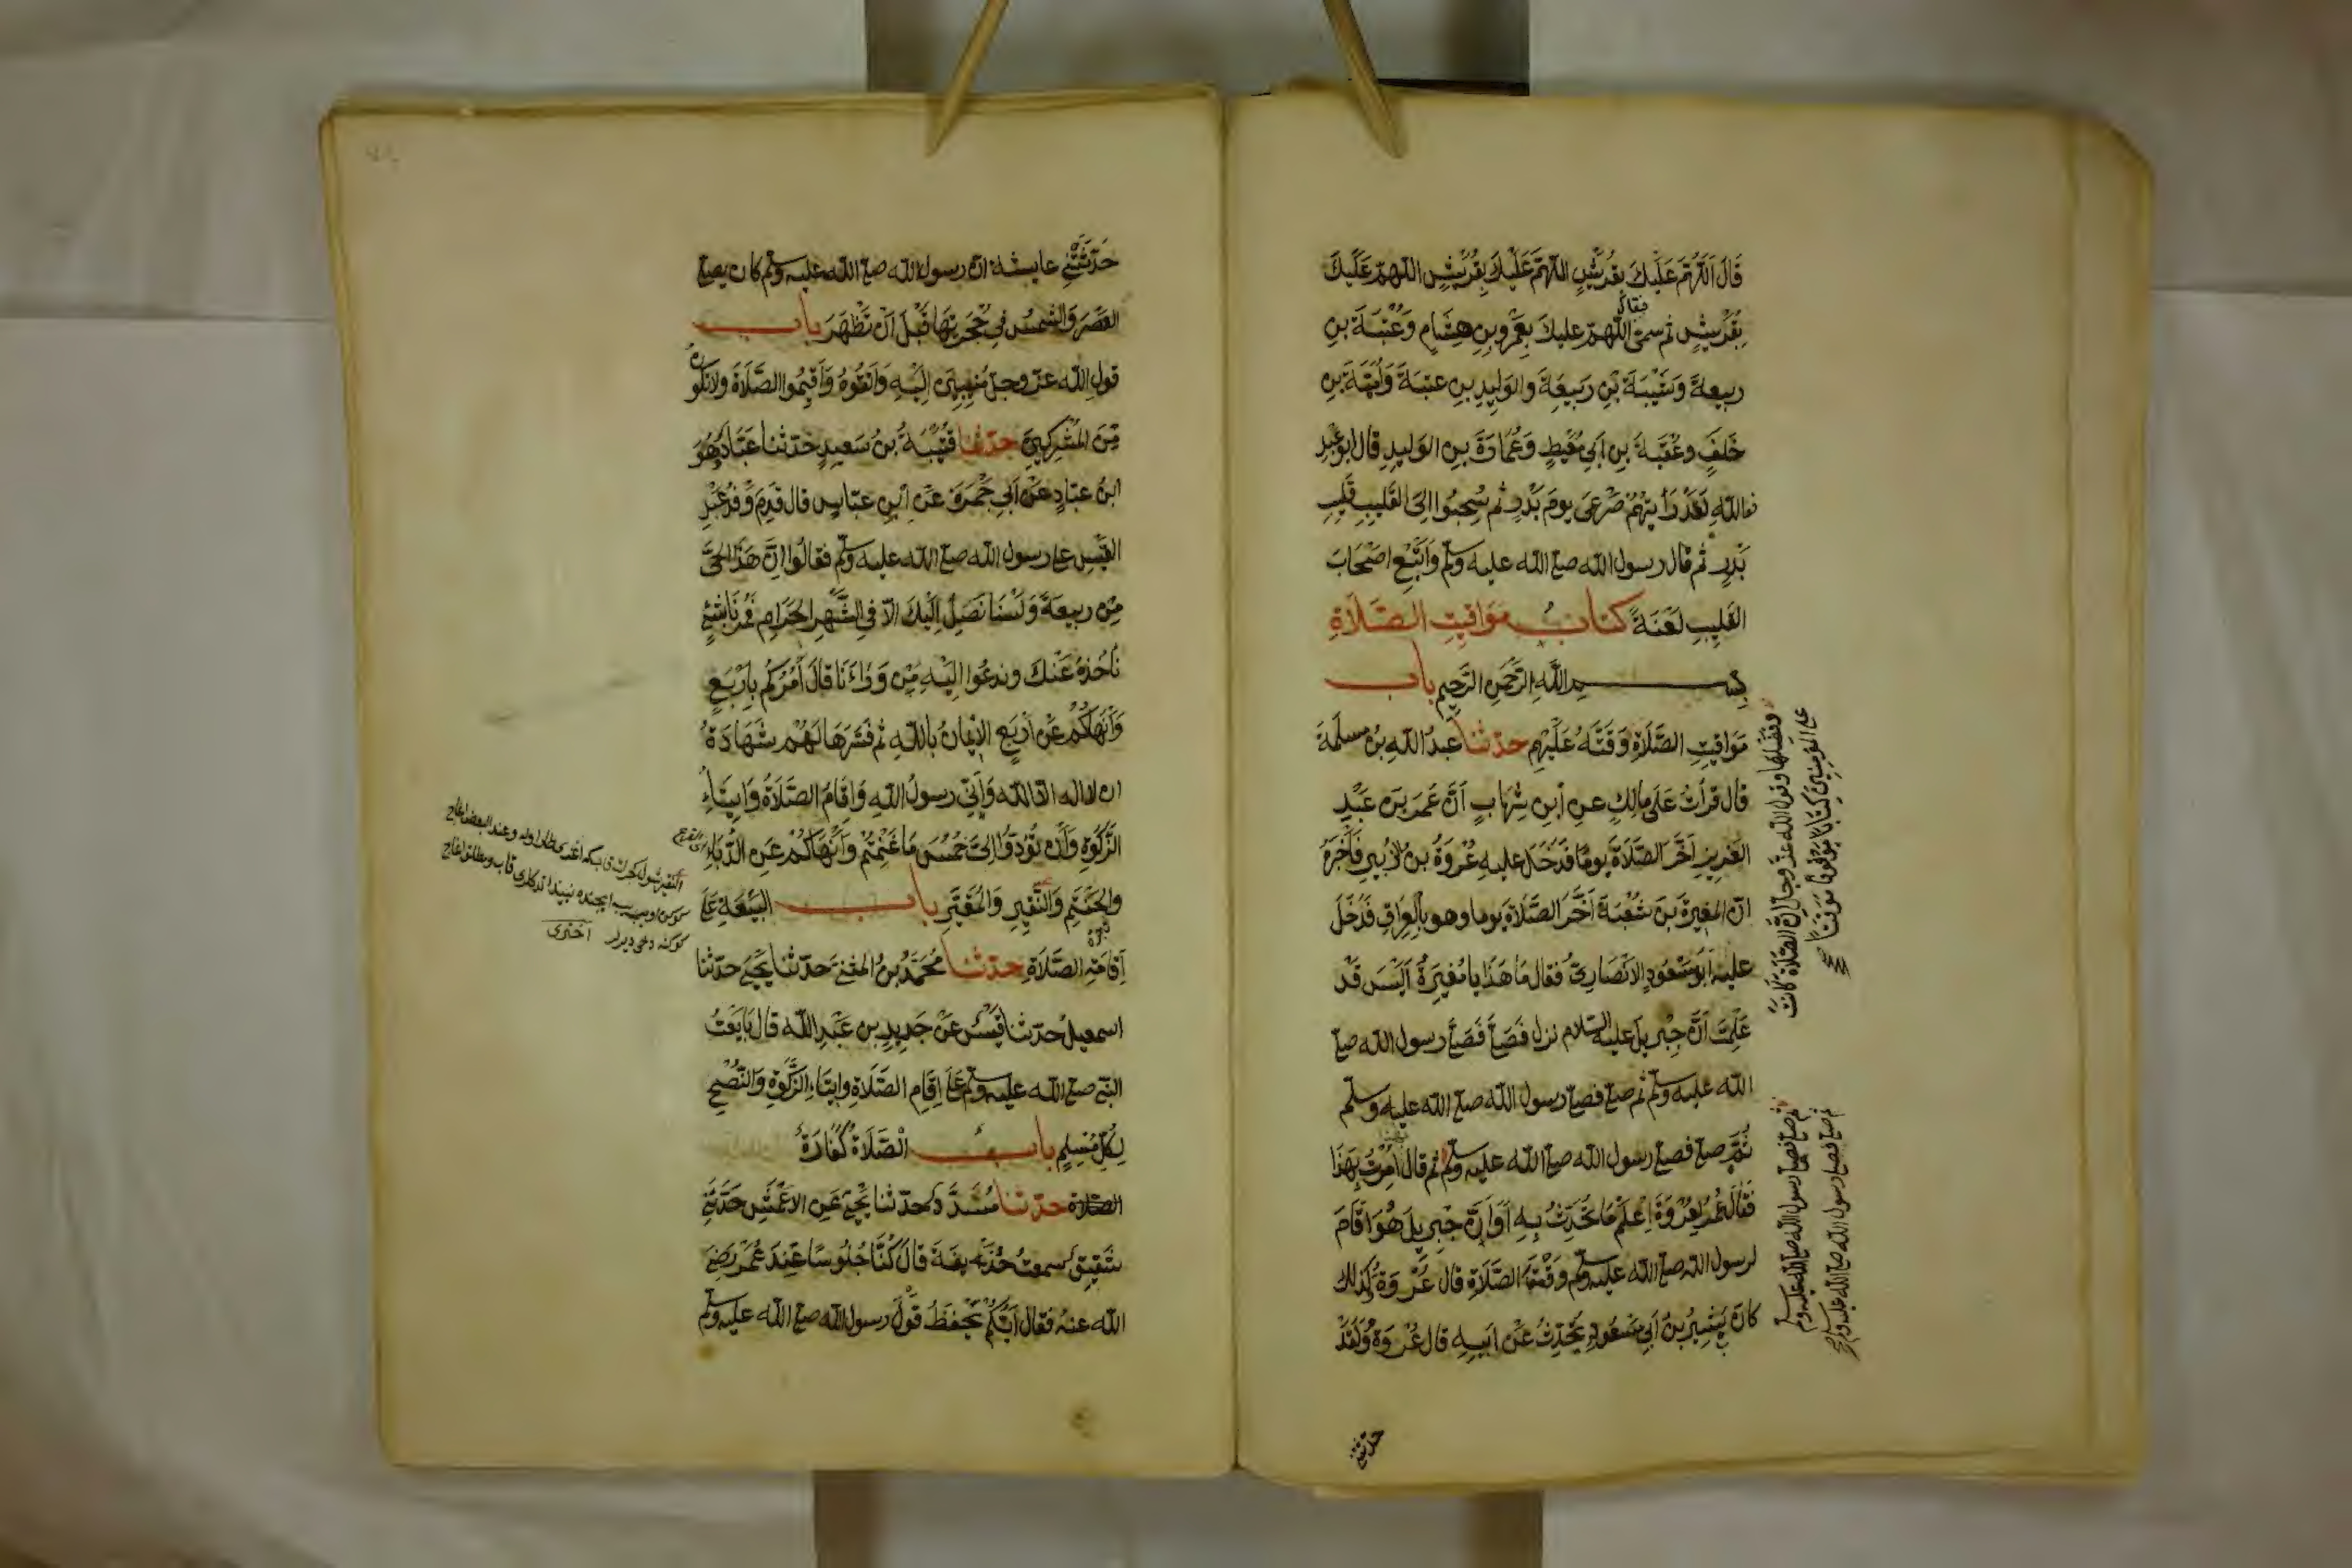 قَالَ اَللّٰهُمَّ عَلَيْكَ بِقُرَيْشٍ اللّٰهُمَّ عَلَيْكَ بِقُرَيْشٍ اللّهمّ عَلَيْكَ
بِقُرَيْشٍ ثم سمى اللّهمّ عليكَ بِعَمْرِو بنِ هِشَامٍ وَعُتْبَةَ بنِ
ربيعةَ وَشَيْبَةَ بْنِ رَبيعَةَ والوَلِيدِ بنِ عتبَةَ وَاُمَيَّةَ بنِ
خَلَفٍ وعُقْبَةَ بنِ اَبِي مُعَيْطٍ وَعُمَارَةَ بنِ الوَليدِ قال
فوالله لَقَدْ رَأَيتهُمْ صَرْعَى يومَ بَدْرٍ ثم سُحِبُوا الى القَليبِ قَلِيبِ
بَدْرٍ ثم قال رسول الله صلى الله عليه وسلم وَاُتْبِعَ اَصْحَابَ
القَلِيبِ لَعْنَةً كتابُ مَوَاقيتِ الصَّلَاةِ
بسم اللّهِ الرّحمٰنِ الرّحيمِ باب
مَوَاقيتِ الصَّلَاةِ وَقَّتَهُ عَلَيْهِم حدّثنا عبدُ اللّهِ بنُ مسلَمَةَ
قال قَرأتُ عَلَى مالِكٍ عنِ اْبنِ شِهَابٍ اَنَّ عُمَرَ بنَ عَبْدِ
العَزيزِ اَخَّرَ الصَّلَاةَ يومًا فَدَخَلَ عليهِ عُرْوَةُ بنُ الزُّبيرِ فَاَخْبَرَهُ
انّ المغيرَةَ بنَ شُعْبَةَ اَخَّرَ الصَّلَاةَ يوما وهو بالعِرَاقِ فَدَخَلَ
عليهِ اَبُو مَسْعُودٍ الانْصَارِيُّ فقال مَا هَذَا يا مُغيَرةُ اَلَيْسَ قَدْ
عَلِمْتَ اَنَّ جِبْرِيلَ عليه السّلام نزل فَصَلّى فَصَلّى رسول الله صلى
الله عليه وسلم ثم صلى فصلى رسول الله صلى الله عليه وسلم
ثُمَّ صلى فصلى رسول الله صلى الله عليه وسلم ثم قال اُمِرْتُ بِهَذَا
فَقَالَ عُمَرُ لِعُرْوَةَ اِعْلَمْ مَا تُحَدِّثُ بِهِ اَوَ اِنَّ جِبْرِيلَ هُوَ اَقَامَ
لرسول الله صلى الله عليه وسلم وَقْتَ الصَّلَاةِ قال عُرْوَةُ كَذَلِكَ
كانَ بَشيرُ بْنُ اَبِي مَسْعُودٍ يُحَدِّثُ عَنْ اَبيهِ قال عُرْوَةُ وَلَقَدْ
وفضلها وقول الله عزّ وجل اِنَّ الصَّلاةَ كَانَتْ
على المؤمنين كتابًا موْقوتًا مُوَقّتًا
ثم صلى فصلى رسول الله صلى الله عليه وسلم
ثم صلى فصلى رسول الله صلى الله عليه وسلم
حدّثتنى
حَدَّثَتْنِي عايشة انّ رسول الله صلى الله عليه وسلم كان يصلى
العَصْرَ وَالشمسُ فِي حُجْرَتِهَا قَبْلَ اَنْ تَظْهَرَ باب
قولِ اللّه عزّ وجلّ مُنِيبِينَ اِلَيْهِ وَاتَّقُوهُ وَأَقِيمُوا الصَّلَاةَ ولا تكونوا
مِنَ المُشْرِكِينَ حدّثنا قُتَيْبَةُ بنُ سَعيدٍ حَدّثنا عَبَّادٌ هُوَ
ابنُ عبّادٍ عَنْ اَبِي جَمْرَةَ عَنِ ابْنِ عبّاسٍ قال قَدِمَ وَفْدُ عَبْدِ
القَيْسِ على رسول الله صلى الله عليه وسلم فقالُوا اِنَّ هَذَا الحَيَّ
مِن ربيعَةَ وَلَسْنَا نَصِلُ اِلَيْكَ الاّ فِي الشَّهْرِ الحَرَامِ فَمُرْنَا بِشَيْءٍ
نَاْخُذهُ عَنْكَ وندعُوا اِلَيْهِ مَنْ وَرَاءَنَا قالَ آمُرُكُم بِاَرْبَعٍ
وَاَنْهَاكُمْ عَنْ اَرْبَعٍ الاِيمَانُ بِاللّهِ ثم فَسَّرَهَا لَهُمْ شَهَادَةُ
ان لا اله الا الله وَاَنِّي رسولُ اللّهِ وَاِقَامُ الصَّلَاةِ وَاِيتَاءُ
الزَّكوةِ وَاَنْ تُؤَدّوُا اِلَىَّ خُمُسَ مَا غَنِمْتُمْ وَاَنْهَاكُمْ عَنِ الدُّبّاءِ
والحَنْتَمِ وَالنَّقِيرِ وَالمُقَيَّرِ باب البَيْعَةِ عَلَى
اِقَامَةِ الصَّلَاةِ حدّثنا مُحَمَّدُ بنُ المثنى حَدّثنا يَحْيَى حدّثنا
اسمعيلُ حدّثنا قَيْسٌ عَنْ جَرِيرِ بنِ عَبْدِ اللّهِ قال بَايَعْتُ
النّبيّ صلى الله عليه وسلم عَلَى اِقَامِ الصَّلَاةِ وايتَاءِ الزَّكوةِ وَالنُّصْحِ
لِكُلِّ مُسْلِمٍ باب الصَّلَاةُ كَفَّارَةٌ
الصّلاة حدّثنا مُسَدَّدٌ حدّثنا يَحْيَى عَنِ الاَعْمَشِ حَدّثَنِي
شَقيقٌ سمعتُ حُذَيفَةَ قالَ كُنَّا جُلُوسًا عِنْدَ عُمَرَ رَضِيَ
الله عنهُ فقال اَيُّكُمْ يَحْفَظُ قَوْلَ رسول الله صلى الله عليه وسلم
اخترى